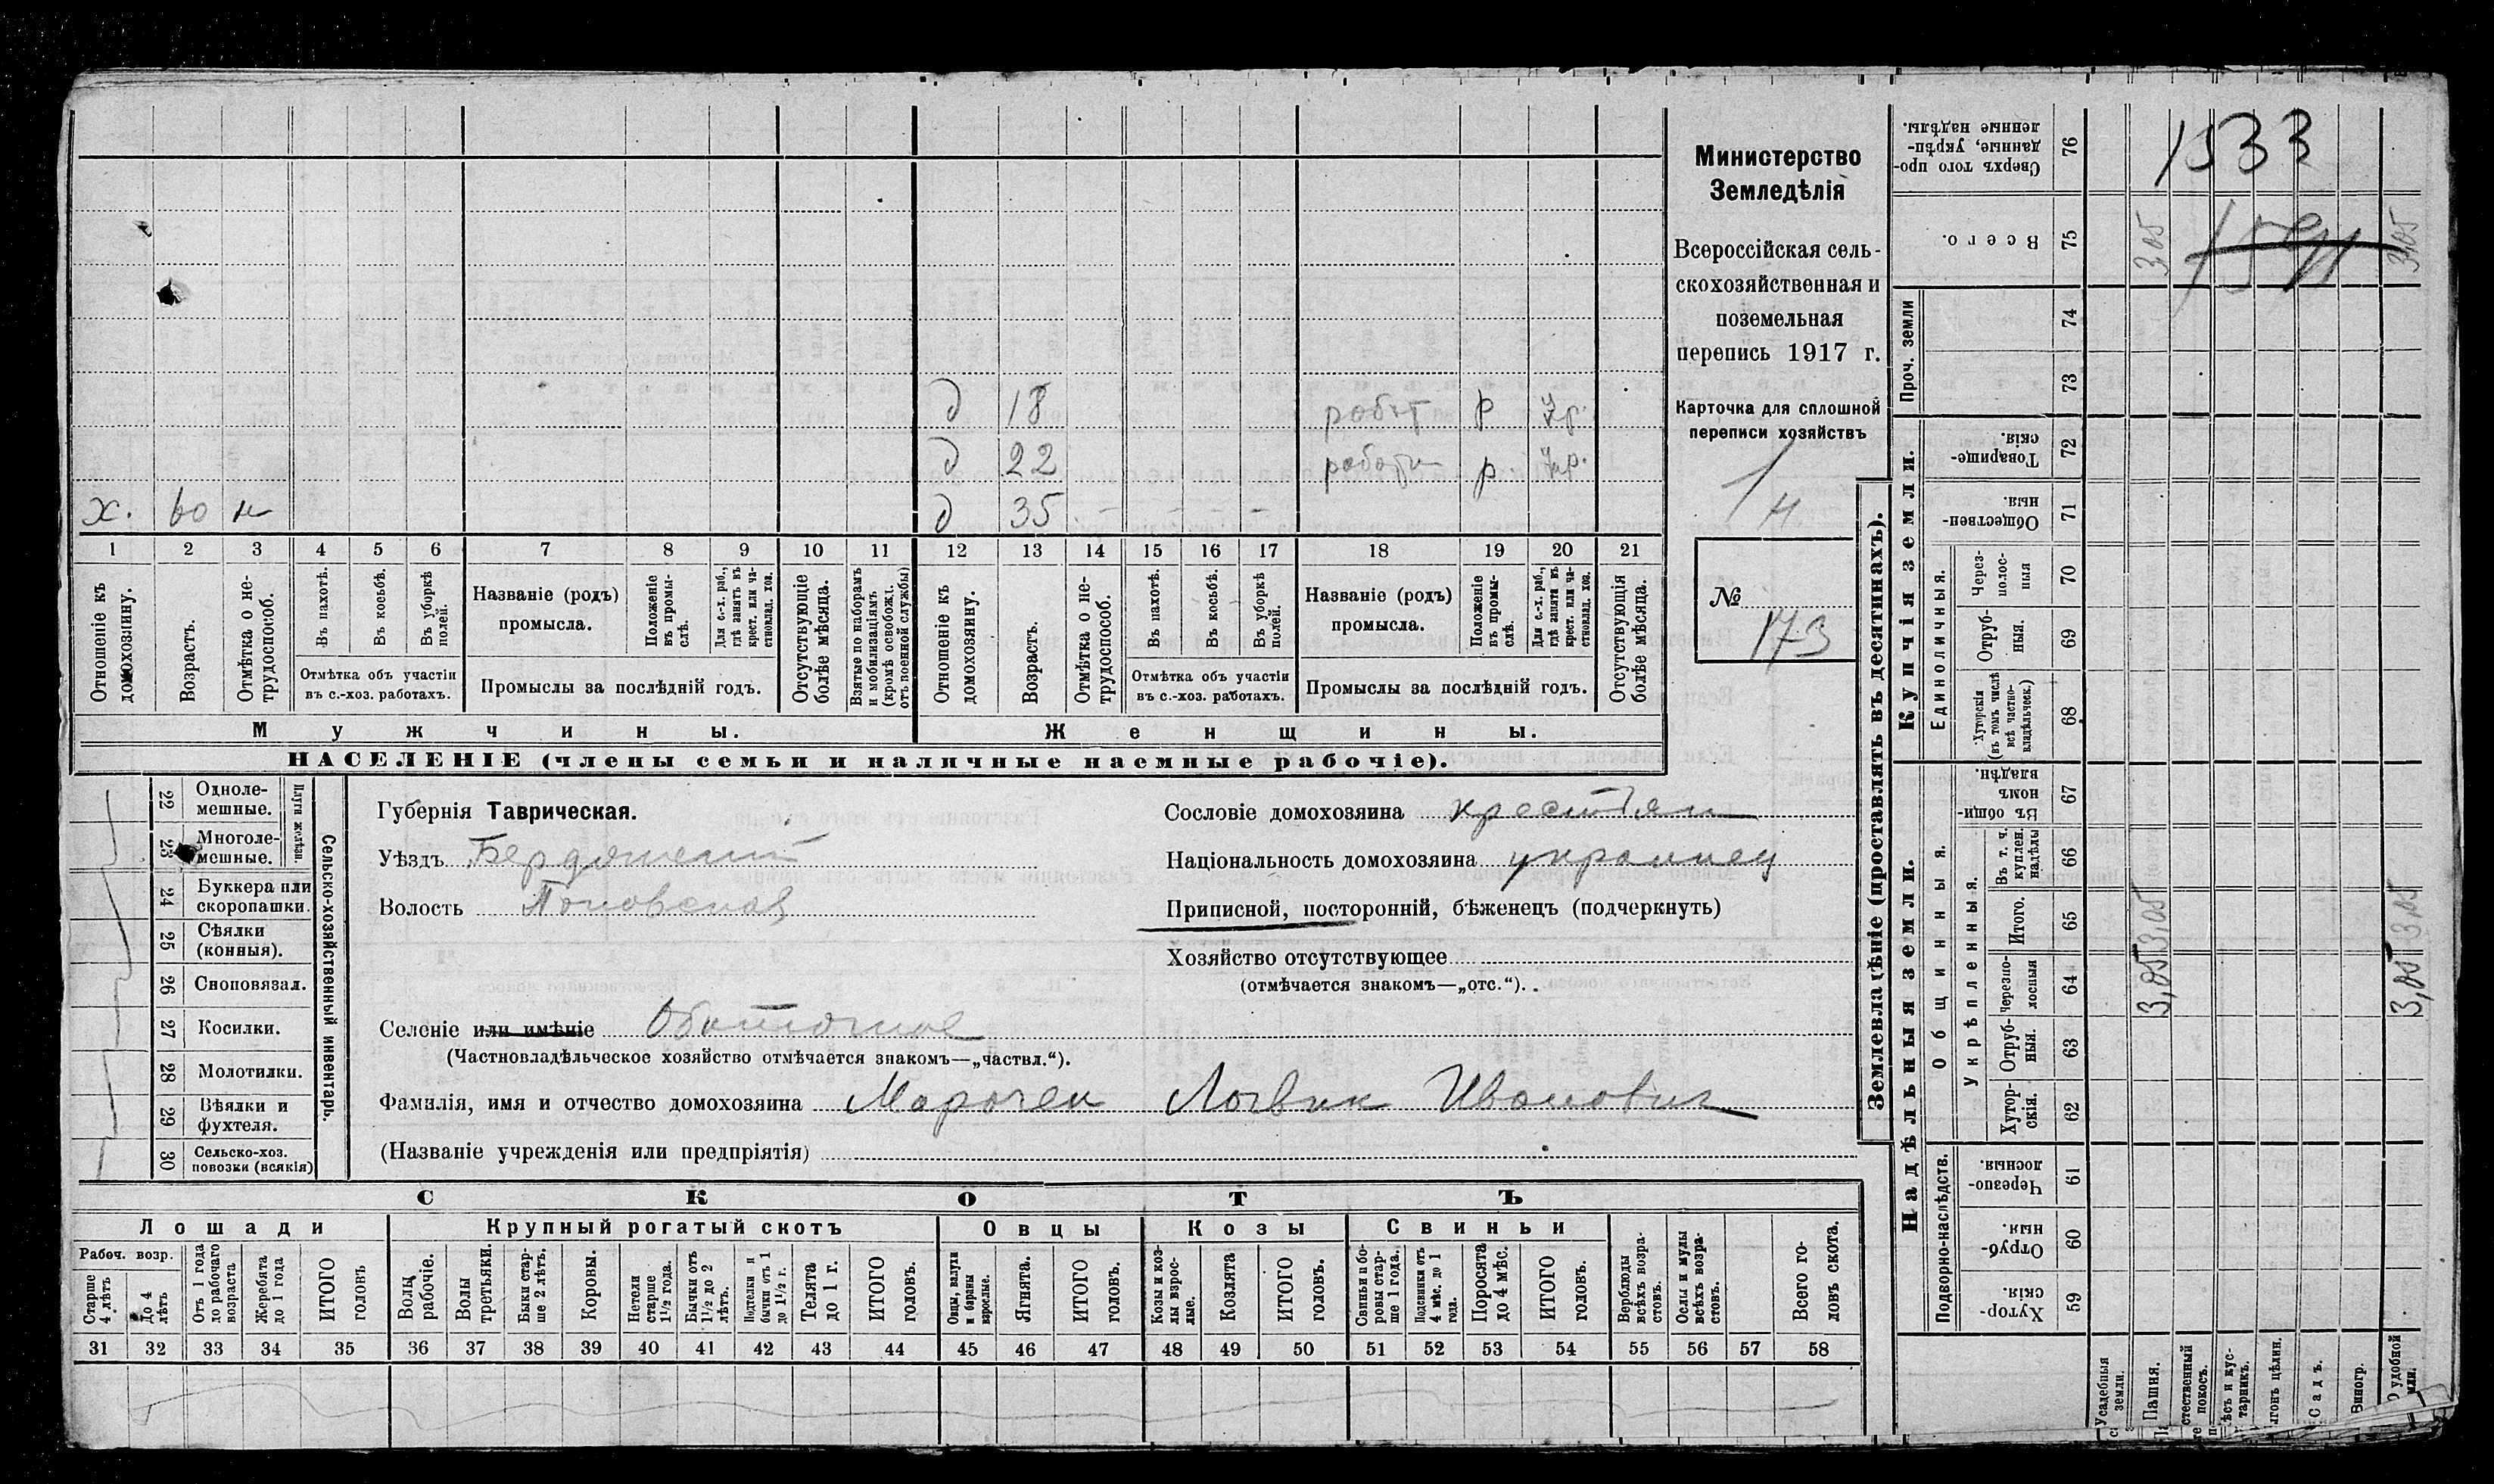 1533
1591
Министерство
Земледѣлія
Всероссійская сель-
скохозяйственная и
поземельная
перепись 1917 г.
Карточка для сплошной
переписи хозяйствъ
1
н
№
173
д 18 работ р
д 22 работ р
х. 60 н д 35 - - - -
1 2 3 4 5 6 7 8 9 10 11 12 13 14 15 16 17 18 19 20 21
Отношеніе къ домохозяину.
Возрастъ.
Отмѣтка о не-трудоспособ.
Въ пахотѣ.
Въ косьбѣ.
Въ уборкѣ полей.
Отмѣтка объ участіи
въ с.-хоз. работахъ.
Названіе (родъ)
промысла.
Положеніе въ промы-слѣ.
Для с.-х. раб., гдѣ занятъ въ крест. или ча-стновлад. хоз.
Промыслы за послѣдній годъ.
Отсутствующіе болѣе мѣсяца.
Взятые по наборамъ и мобилизаціямъ (кромѣ освобожд. отъ военной службы)
Отношеніе къ домохозяину.
Возрастъ.
Отмѣтка о не-трудоспособ.
Въ пахотѣ.
Въ косьбѣ.
Въ уборкѣ полей.
Отмѣтка объ участіи
въ с.-хоз. работахъ.
Названіе (родъ)
промысла.
Положеніе въ промы-слѣ.
Для с.-х. раб., гдѣ занята въ крест. или ча-стновлад. хоз.
Промыслы за послѣдній годъ.
Отсутствующія болѣе мѣсяца.
Мужчины. Женщины.
НАСЕЛЕНІЕ (члены семьи и наличные наемные рабочіе).
Сельско-хозяйственный инвентарь.
Плуги желѣзн.
22 Одноле-мешные.
23 Многоле-мешные.
24 Буккера или скоропашки.
25 Сѣялки (конныя).
26 Сноповязал.
27 Косилки.
28 Молотилки.
29 Вѣялки и фухтеля.
30 Сельско-хоз. повозки (всякія)
Губернія Таврическая.
Уѣздъ Бердянский
Волость Поповская
Селеніе или имѣніе Обиточное
(Частновладѣльческое хозяйство отмѣчается знакомъ—„частвл.“).
Фамилія, имя и отчество домохозяина Марочек Логвин Иванович
(Названіе учрежденія или предпріятія)
Сословіе домохозяина крестьян
Національность домохозяина украинец
Приписной, посторонній, бѣженецъ (подчеркнуть)
Хозяйство отсутствующее
(отмѣчается знакомъ—„отс.“).
СКОТЪ
Лошади Крупный рогатый скотъ Овцы Козы Свиньи
Рабоч. возр.
Старше 4 лѣтъ
До 4 лѣтъ
Отъ 1 года до рабочаго возраста
Жеребята до 1 года
ИТОГО головъ
Волы рабочіе.
Волы третьяки.
Быки стар-ше 2 лѣтъ.
Коровы.
Нетели старше 1½ года.
Бычки отъ 1½ до 2 лѣтъ.
Подтелки и бычки отъ 1 до 1½ г.
Телята до 1 г.
ИТОГО головъ.
Овцы, валухи и бараны взрослые.
Ягнята.
ИТОГО головъ.
Козы и коз-лы взрос-лые.
Козлята
ИТОГО головъ.
Свиньи и бо-ровы стар-ше 1 года.
Подсвинки отъ 4 мѣс. до 1 года.
Поросята до 4 мѣс.
ИТОГО головъ.
Верблюды всѣхъ возра-стовъ.
Ослы и мулы всѣхъ возра-стовъ.
Всего го-ловъ скота.
31 32 33 34 35 36 37 38 39 40 41 42 43 44 45 46 47 48 49 50 51 52 53 54 55 56 57 58
Землевладѣніе (проставлять въ десятинахъ).
Надѣльныя земли. Купчія земли. Проч. земли
Подворно-наслѣдств.
Общинныя.
Укрѣпленныя.
Единоличныя.
59 Хутор-скія.
60 Отруб-ныя.
61 Черезпо-лосныя.
62 Хутор-скія.
63 Отруб-ныя.
64 Черезпо-лосныя
65 Итого.
66 Въ т. ч. куплен. надѣлы
67 Въ общин-номъ владѣн.
68 Хуторскія (въ томъ числѣ всѣ частно-владѣльческ.)
69 Отруб-ныя.
70 Через-полос-ныя
71 Обществен-ныя.
72 Товарище-скія.
73
74
75 Всего.
76 Сверхъ того про-данные, укрѣп-ленные надѣлы.
Усадебныя земли.
Пашня.
3,05 3,05 3,05
покосъ.
Садъ.
Виногр.
3,05 3,05 3,05